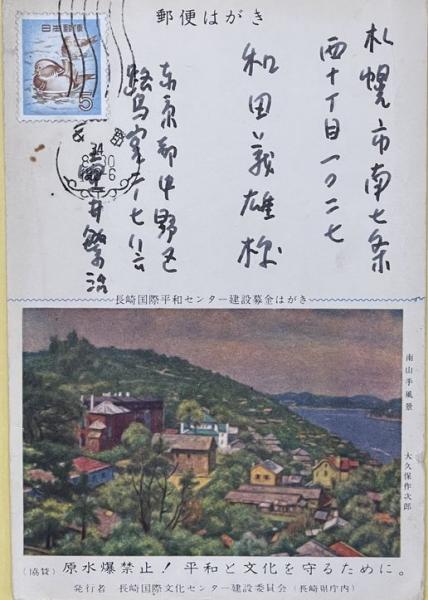 郵便はがき
日本郵便
5
札幌市南七条
西十丁目一〇二七
和田義雄様
東京都中野区
鷺宮二ノ七八六
壺井繁治
34
長崎国際平和センター建設募金はがき
南山手風景
大久保作次郎
(協賛) 原水爆禁止! 平和と文化を守るために。
発行者 長崎国際文化センター建設委員会 (長崎県庁内)